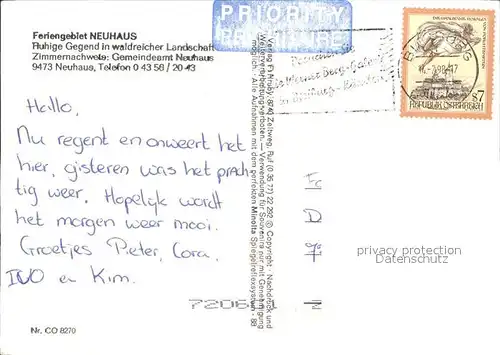 Feriengebiet NEUHAUS
Ruhige Gegend in waldreicher Landschaft
Zimmernachweis: Gemeindeamt Neuhaus
9473 Neuhaus, Telefon 0 43 56 / 20 43
PRIORITY
PRIORITAIRE
REPUBLIK ÖSTERREICH
S7
Hallo,
Nu regent en onweert het
hier, gisteren was het prach-
tig weer. Hopelijk wordt
het morgen weer mooi.
Groetjes Pieter, Cora,
IVO en Kim.
Verlag F. Hruby, 8740 Zeltweg, Ruf (0 35 77) 22 292 © Copyright · Nachdruck und
Weiterververvielfältigung verboten. — Verwendung für Souvenirs nur mit Genehmigung
möglich. · Alle Aufnahmen mit dem perfekten Minolta Spiegelreflexsystem · 88
privacy protection
Datenschutz
Nr. CO 8270